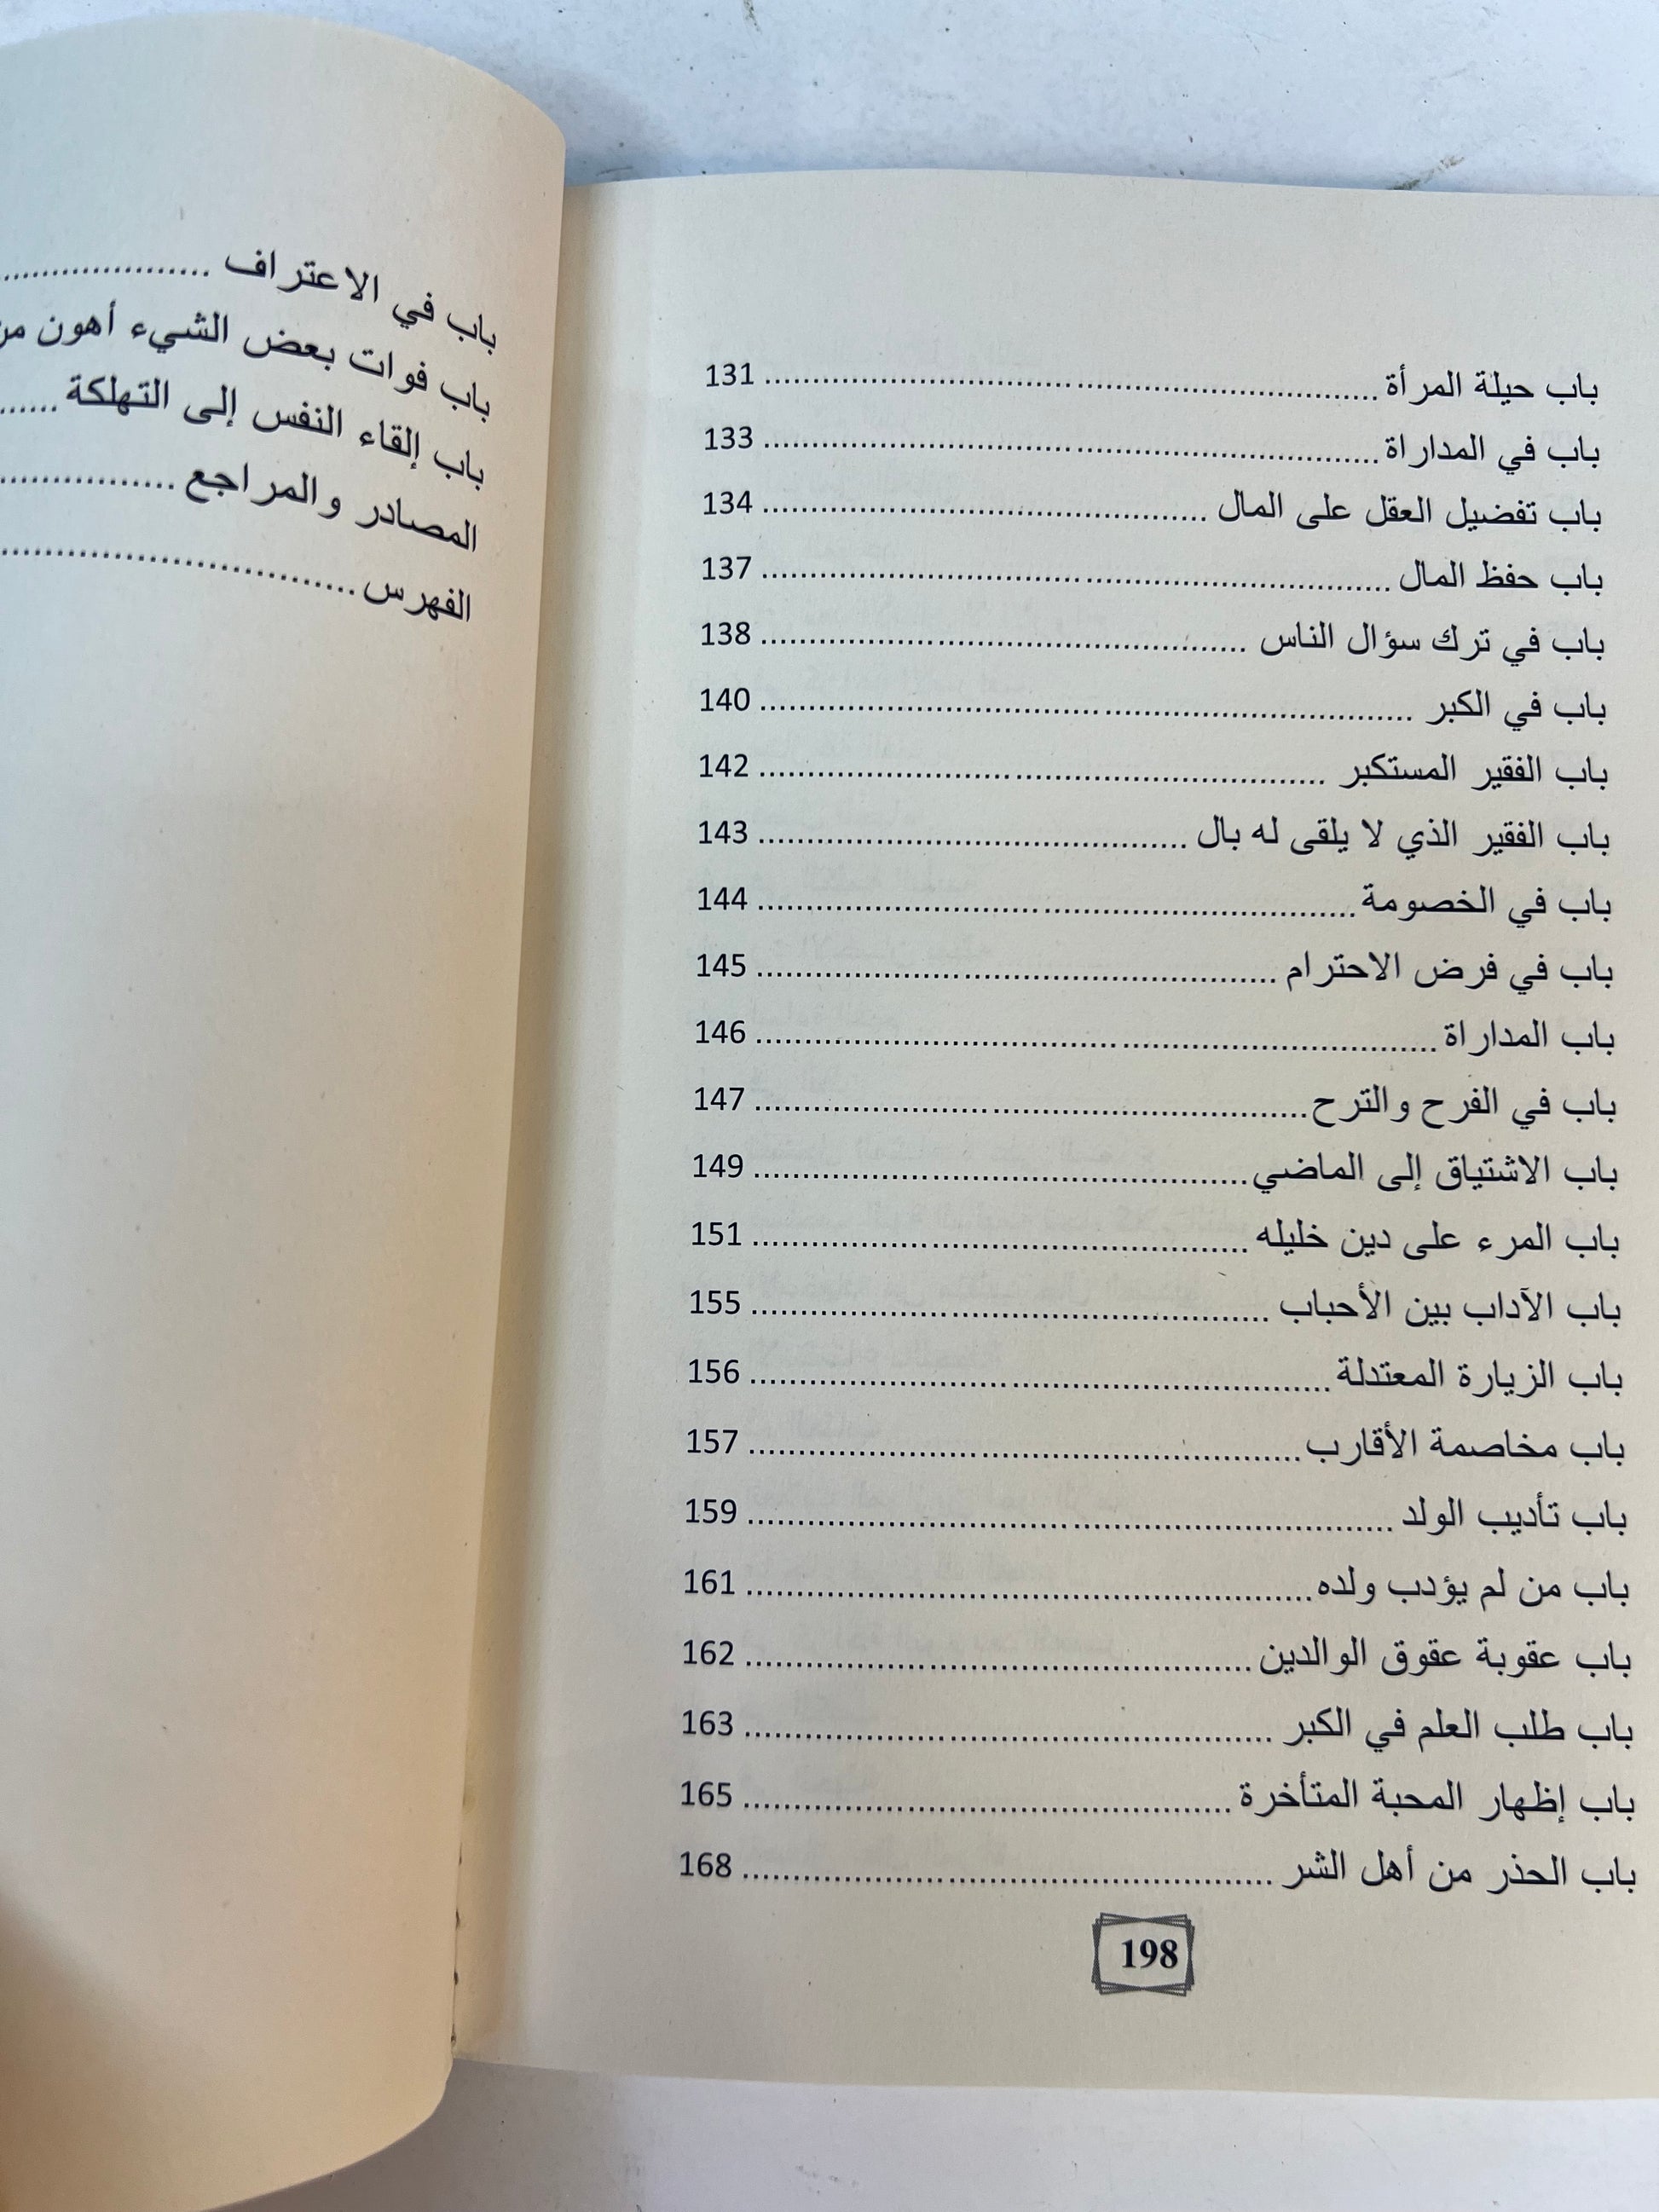 باب حيلة المرأة ........................................ 131
باب في المداراة ........................................ 133
باب تفضيل العقل على المال ........................................ 134
باب حفظ المال ........................................ 137
باب في ترك سؤال الناس ........................................ 138
باب في الكبر ........................................ 140
باب الفقير المستكبر ........................................ 142
باب الفقير الذي لا يلقى له بال ........................................ 143
باب في الخصومة ........................................ 144
باب في فرض الاحترام ........................................ 145
باب المداراة ........................................ 146
باب في الفرح والترح ........................................ 147
باب الاشتياق إلى الماضي ........................................ 149
باب المرء على دين خليله ........................................ 151
باب الآداب بين الأحباب ........................................ 155
باب الزيارة المعتدلة ........................................ 156
باب مخاصمة الأقارب ........................................ 157
باب تأديب الولد ........................................ 159
باب من لم يؤدب ولده ........................................ 161
باب عقوبة عقوق الوالدين ........................................ 162
باب طلب العلم في الكبر ........................................ 163
باب إظهار المحبة المتأخرة ........................................ 165
باب الحذر من أهل الشر ........................................ 168
198
باب في الاعتراف ....................
باب فوات بعض الشيء أهون من
باب إلقاء النفس إلى التهلكة ......
المصادر والمراجع ................
الفهرس ..............................